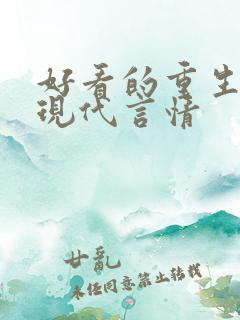 好看的重生
現代言情
廿乱
未任同意禁止转载